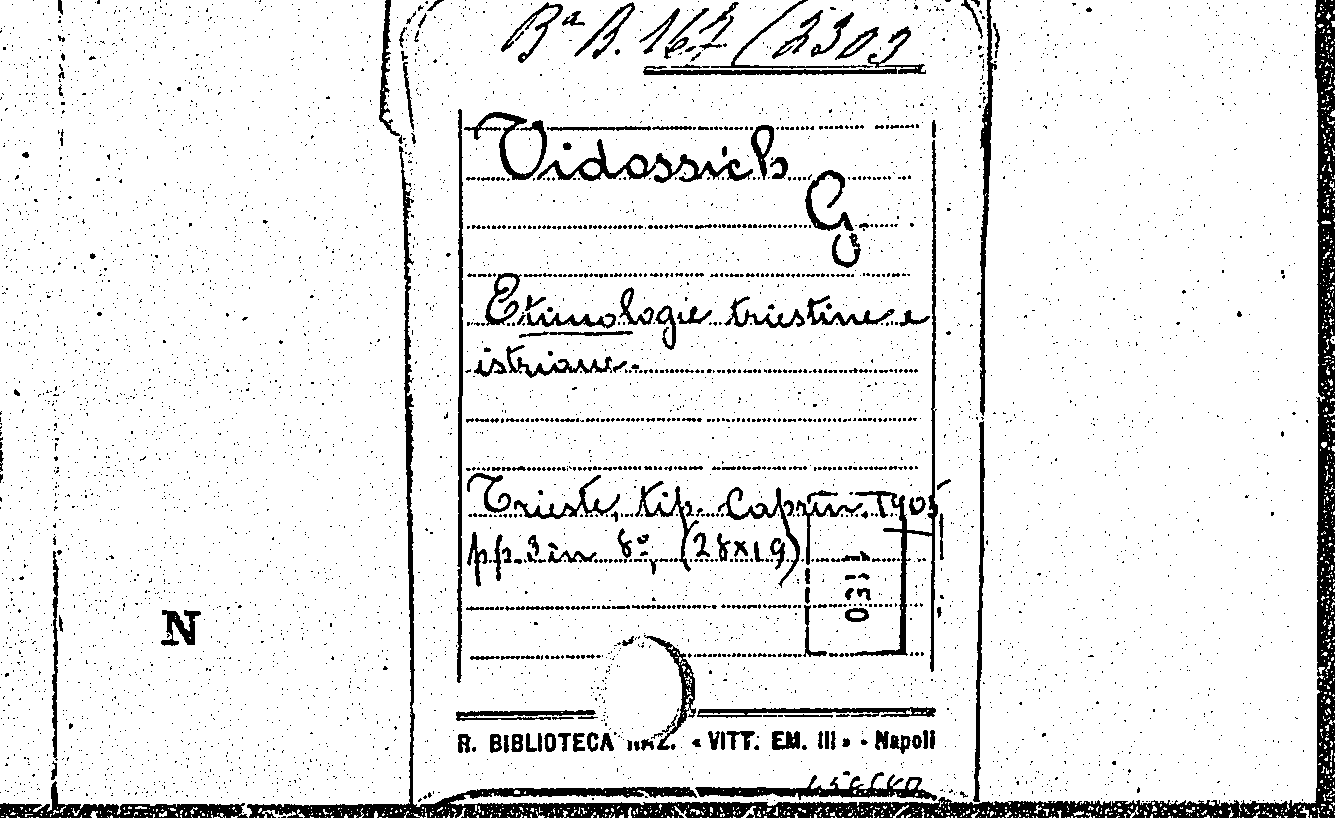 Bª B. 167/2303
Vidossich
G.
Etimologie triestine e
istriane.
Trieste, tip. Caprin. 1905
pp. 3 in 8º, (28x19)
N
R. BIBLIOTECA NAZ. « VITT. EM. III » - Napoli